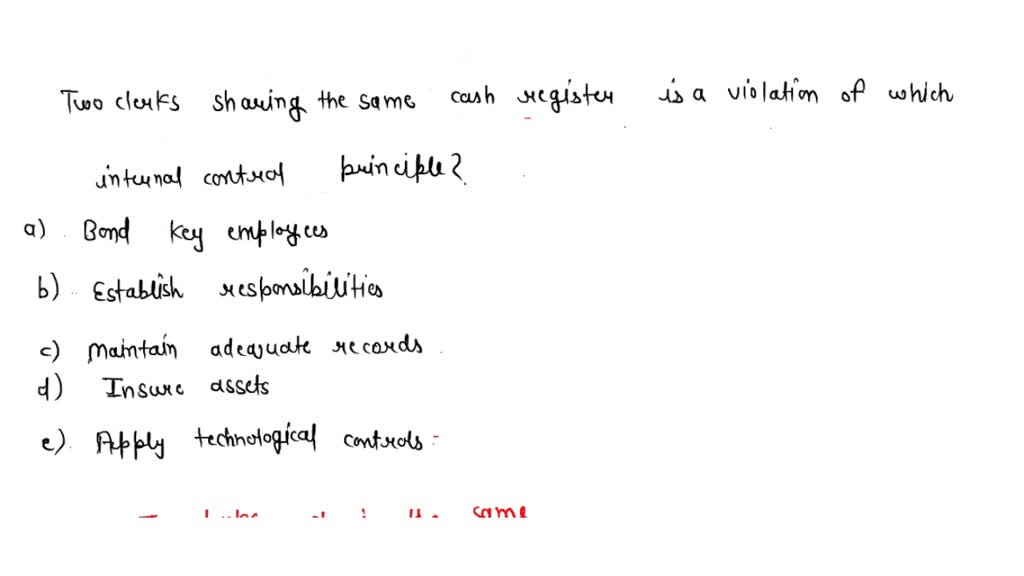 Two clerks sharing the same cash register is a violation of which
internal control principle?
a) Bond key employees
b) Establish responsibilities
c) Maintain adequate records
d) Insure assets
e) Apply technological controls
the same